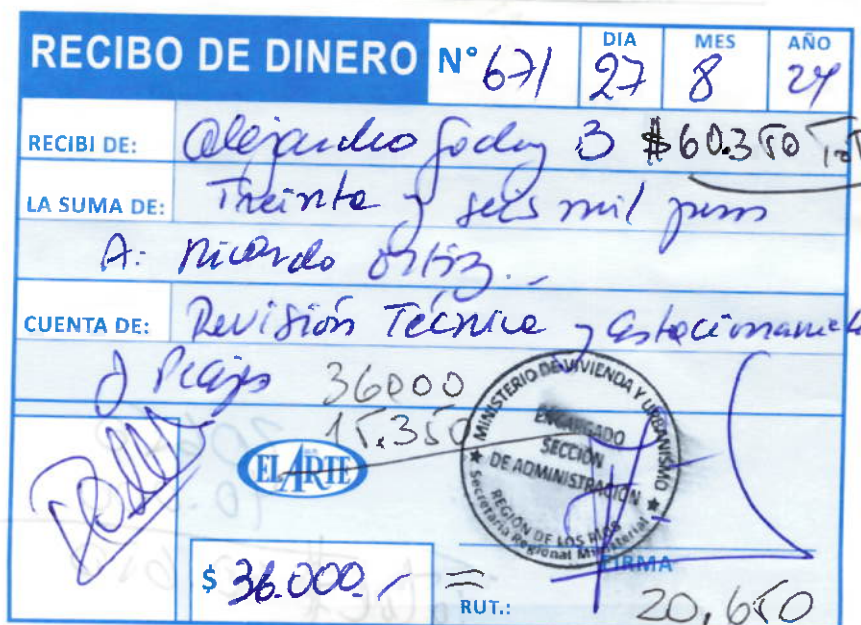 RECIBO DE DINERO N° 671 DIA 27 MES 8 AÑO 24
RECIBI DE: Alejandro Godoy B $60.350
LA SUMA DE: Treinta y seis mil pesos
A: Ricardo Ortiz.-
CUENTA DE: Revisión Técnica y Estacionamiento
Peajes 36000
15.350
EL ARTE
MINISTERIO DE VIVIENDA Y URBANISMO
ENCARGADO
SECCIÓN
DE ADMINISTRACIÓN
REGIÓN DE LOS RIOS
Secretaría Regional Ministerial
FIRMA
$ 36.000.-
RUT.: 20,650